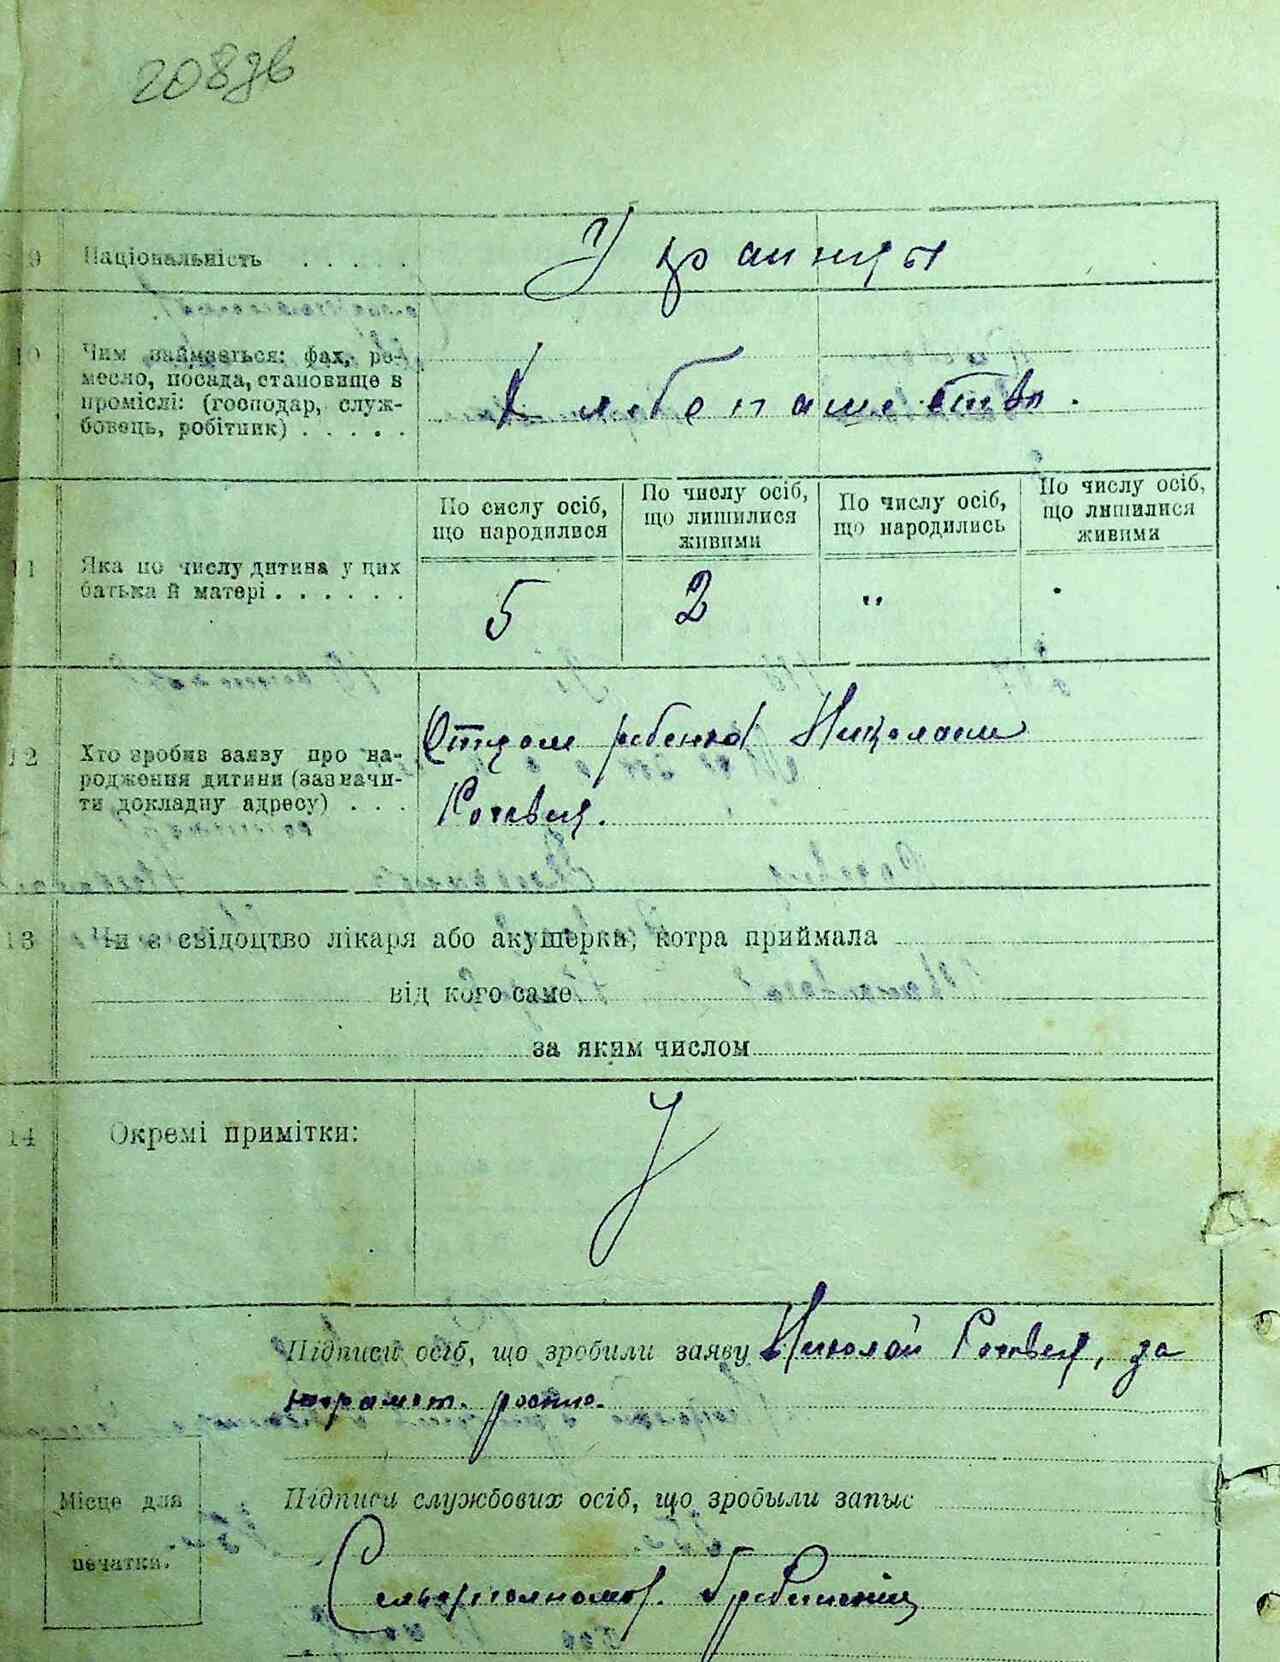 208зв
9 Національність . . . . .
Украинцы
10 Чим займається: фах, ре-
месло, посада, становище в
проміслі: (господар, служ-
бовець, робітник) . . . . .
Хлебопашество.
По сислу осіб,
що народилвся
По числу осіб,
що лишилися
живими
По числу осіб,
що народились
По числу осіб,
що лишилися
живими
11 Яка по числу дитина у цих
батька й матері . . . . . .
5 2 " .
12 Хто зробив заяву про на-
родження дитини (зазначи-
ти докладну адресу) . . .
Отцом ребенка Николаем
13 Чи є свідоцтво лікаря або акушерки, котра приймала
від кого саме
за яким числом
14 Окремі примітки:
Підписи осіб, що зробили заяву Николай за
неграмот.
Місце для
печатки.
Підписи службових осіб, що зробыли запыс